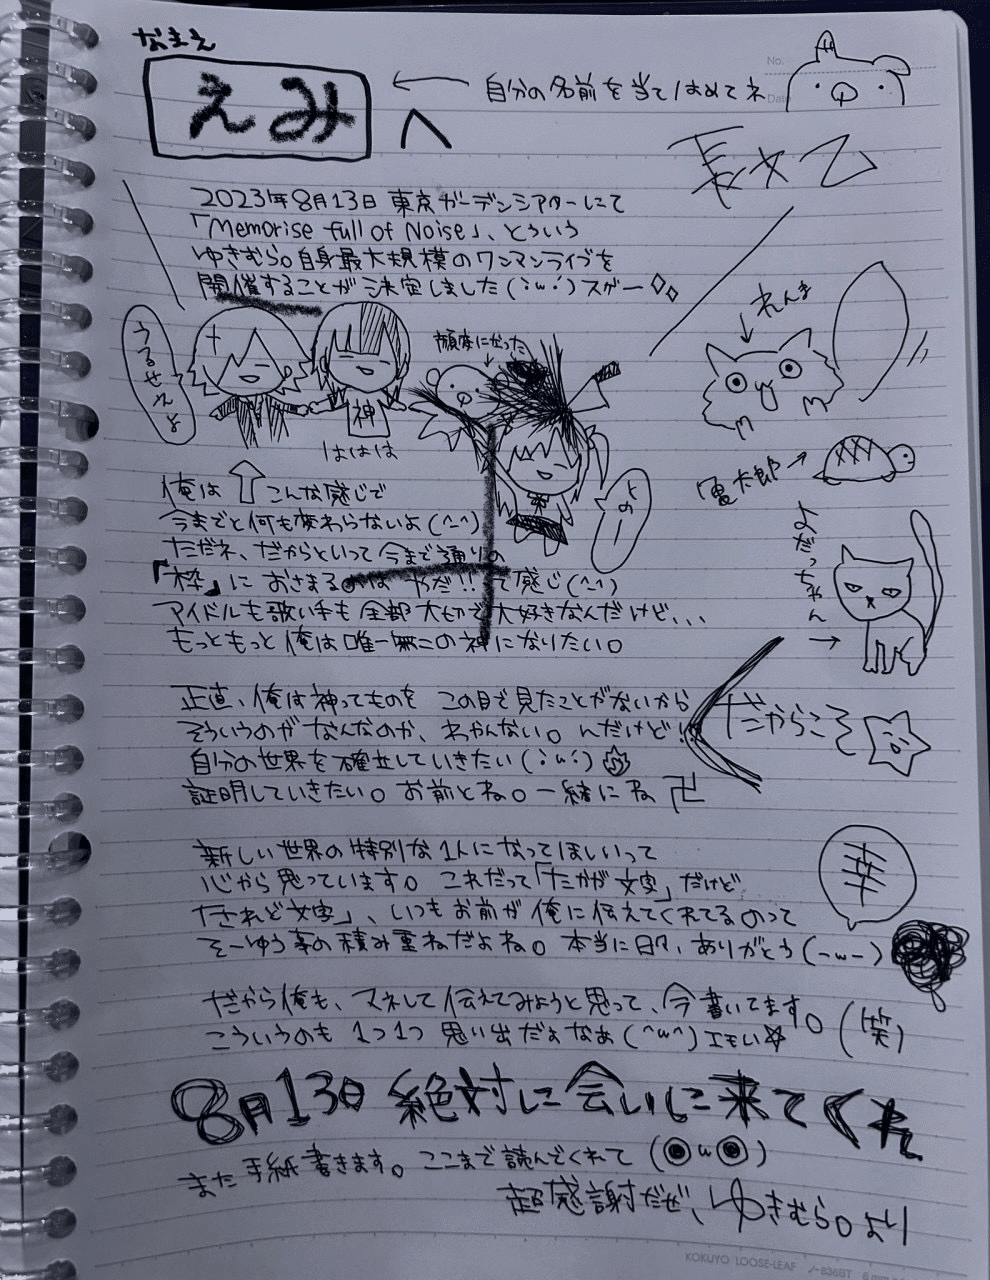 なまえ
えみ
へ
← 自分の名前を当てはめてネ
No.
Date
長文乙
2023年8月13日 東京ガーデンシアターにて
「Memorise full of Noise」、とういう
ゆきむら。自身最大規模のワンマンライブを
開催することが決定しました(;ω;)スゲー
うるせぇよ
顔変になった
れんま
神
ははは
よの一
亀太郎
よだっちゃん
俺は ⇧ こんな感じで
今までと何も変わらないよ(^-^)
ただネ、だからといって今まで通りの
「枠」におさまるのはやだ!!て感じ(^-^)
アイドルも歌い手も全部大切で大好きなんだけど、、、
もっともっと俺は唯一無二の神になりたい。
正直、俺は神ってものを この目で見たことがないから
そういうのがなんなのか、わかんない。んだけど!!
だからこそ
自分の世界を確立していきたい(;ω;)
証明していきたい。お前とね。一緒にね 卍
新しい世界の特別な1人になってほしいって
心から思っています。これだって「たかが文字」だけど
幸
「されど文字」、いつもお前が俺に伝えてくれてるのって
そーゆう事の積み重ねだよね。本当に日々、ありがとう(-ω-)
だから俺も、マネして伝えてみようと思って、今書いてます。(笑)
こういうのも1つ1つ思い出だぁなぁ(^ω^)エモい☆
8月13日 絶対に会いに来てくれ
また手紙書きます。ここまで読んでくれて(◉ω◉)
超感謝だぜ、ゆきむら。より
KOKUYO LOOSE-LEAF ノ-836BT